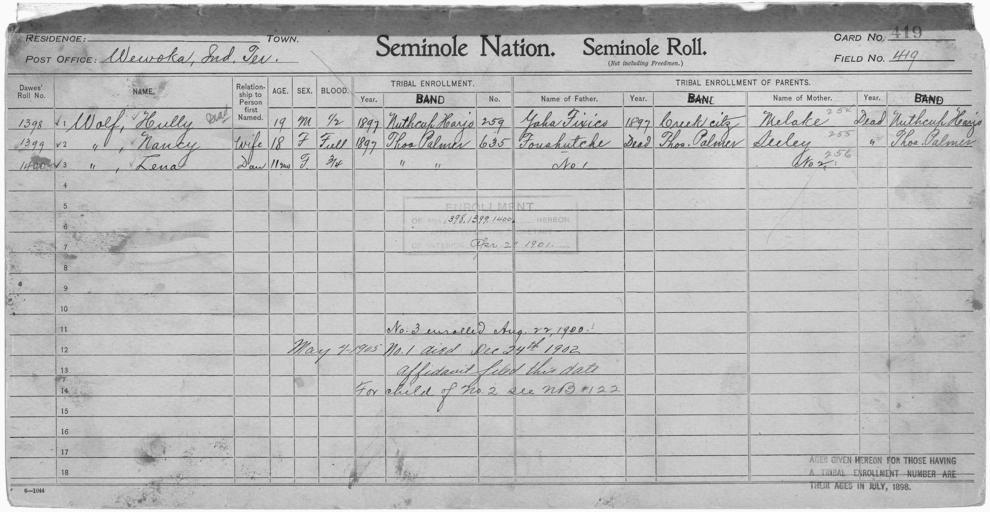 RESIDENCE: TOWN.
POST OFFICE: Wewoka, Ind. Ter.
Seminole Nation. Seminole Roll.
(Not including Freedmen.)
CARD NO. 419
FIELD NO. 419
Dawes' Roll No. NAME. Relationship to Person first Named. AGE. SEX. BLOOD. TRIBAL ENROLLMENT. TRIBAL ENROLLMENT OF PARENTS.
Year. BAND No. Name of Father. Year. BAND Name of Mother. Year. BAND
1398 1 Wolf, Hully Dead 19 M 1/2 1897 Nuthcup Harjo 259 Yaha Fixico 1897 Creek citz Melake 254 Dead Nuthcup Harjo
1399 2 " , Nancy Wife 18 F Full 1897 Thos. Palmer 635 Foushutche Dead Thos. Palmer Seeley 255 " Thos. Palmer
1400 3 " , Lena Dau 11mo F 3/4 " " No 1 No 2 256
4
5
ENROLLMENT
OF HEREON
398, 1399, 1400.
6
7
OF INTERIOR Apr 2 1901.
8
9
10
11 No. 3 enrolled Aug. 22, 1900.
12 May 4-1905 No. 1 died Dec 24th 1902
13 affidavit filed this date
14 For child of No. 2 see NB #122
15
16
17
18
AGES GIVEN HEREON FOR THOSE HAVING
A TRIBAL ENROLLMENT NUMBER ARE
THEIR AGES IN JULY, 1898.
6—1044